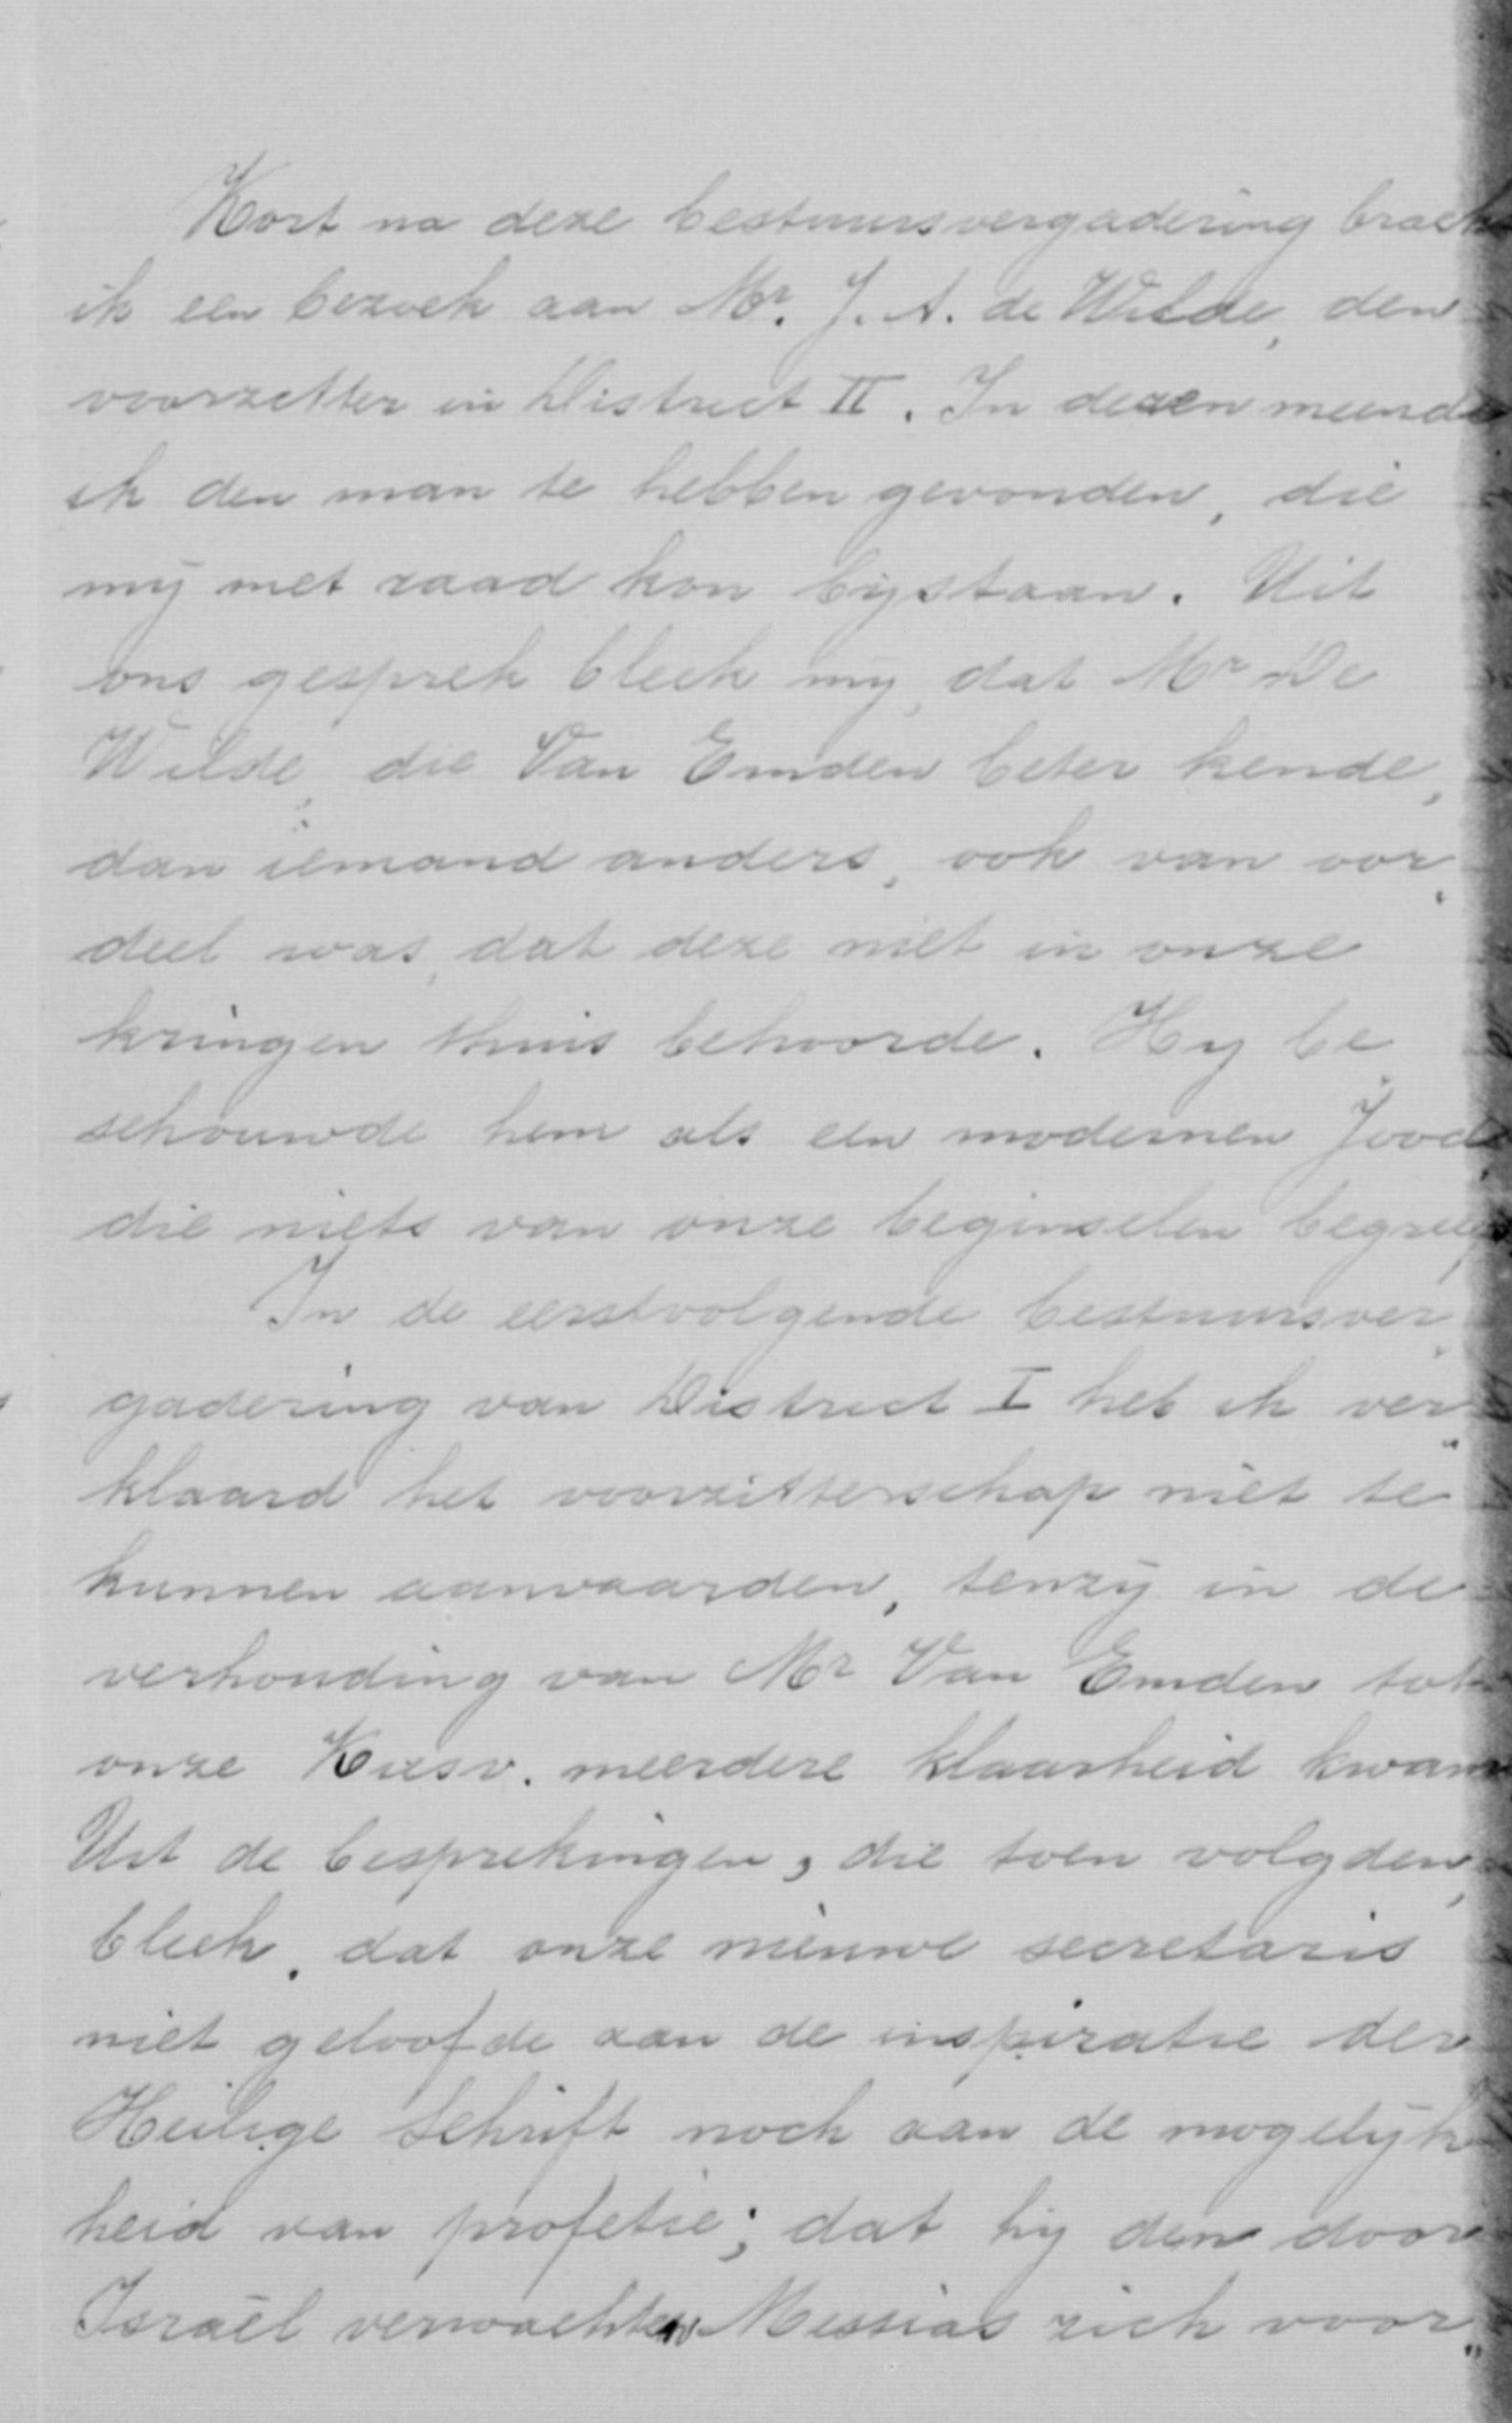 Kort na deze bestuursvergadering brach
ik een bezoek aan Mr. J. A. de Wilde, den
voorzitter in District II. In dezen meende
ik den man te hebben gevonden, die
mij met raad kon bijstaan. Uit
ons gesprek bleek mij, dat Mr De
Wilde, die Van Emden beter kende,
dan iemand anders, ook van oor„
deel was, dat deze niet in onze
kringen thuis behoorde. Hij be„
schouwde hem als een modernen Jood,
die niets van onze beginselen begreep
In de eerstvolgende bestuursver„
gadering van District I heb ik ver„
klaard het voorzitterschap niet te
kunnen aanvaarden, tenzij in de
verhouding van Mr Van Emden tot
onze Kiesv. meerdere klaarheid kwam
Uit de besprekingen, die toen volgden,
bleek, dat onze nieuwe secretaris
niet geloofde aan de inspiratie der
Heilige Schrift noch aan de mogelijk
heid van profetie; dat hij den door
Israël verwachten Messias zich voor„